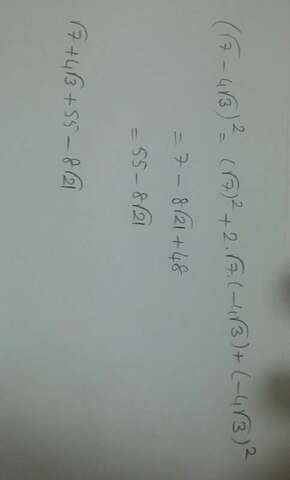 (√7 - 4√3)² = (√7)² + 2·√7·(-4√3) + (-4√3)²
= 7 - 8√21 + 48
= 55 - 8√21
√7 + 4√3 + 55 - 8√21